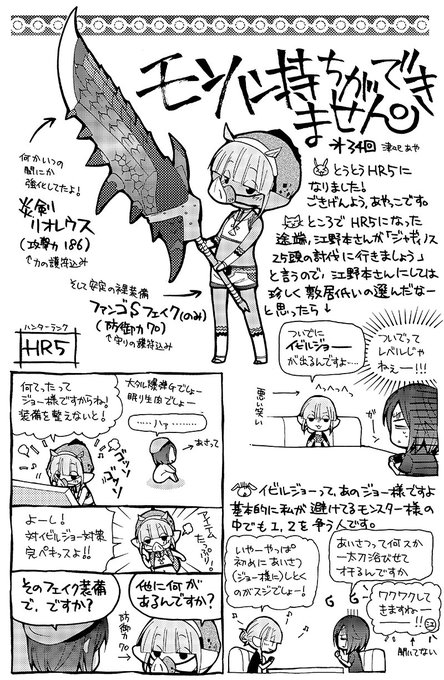 モンハン持ちができ
ません。
オ34回 津々巳あや
とうとうHR5に
なりました!
ごきげんよう、あやこです。
ところで HR5になった
途端、江野本さんが「ジャギィノス
25頭の討伐に行きましょう」
と言うので、江野本さんにしては
珍しく敷居低いの選んだなー
と思ったら↓
何かいつの
間にか
強化してたよ!
炎剣
リオレウス
(攻撃力 186)
↑力の護符込み
そして安定の神装備
ファンゴSフェイク(のみ)
(防御力 70)
↑守りの護符込み
ハンターランク
HR5
ついでに
イビルジョー
が出るんですよ…
ついでって
レベルじゃ
ねぇー!!!
へっへっへっ
悪い笑い
ガーン
何てったって
ジョー様ですからね!
装備を整えないと!
ゴソッ
ゴソッ
大タル爆弾Gでしょー
眠り生肉でしょー
……ハァ……
あさって
イビルジョーって、あのジョー様ですよ
基本的に私が避けてるモンスター様の
中でも1、2を争う人です。
よーし!
対イビルジョー対策
完ペキっスよ!!
アイテム
たっぷり!
いやーやっぱ
初めにあいさつ
(ジョー様に)しとく
のがスジでしょー!
あいさつって何スか
一太刀浴びせて
オチるんですか
ワクワクして
きますねー
ー!!
江
↑聞いてない
そのフェイク装備
で、ですか?
他に何が
あるんですか?
防御力
70